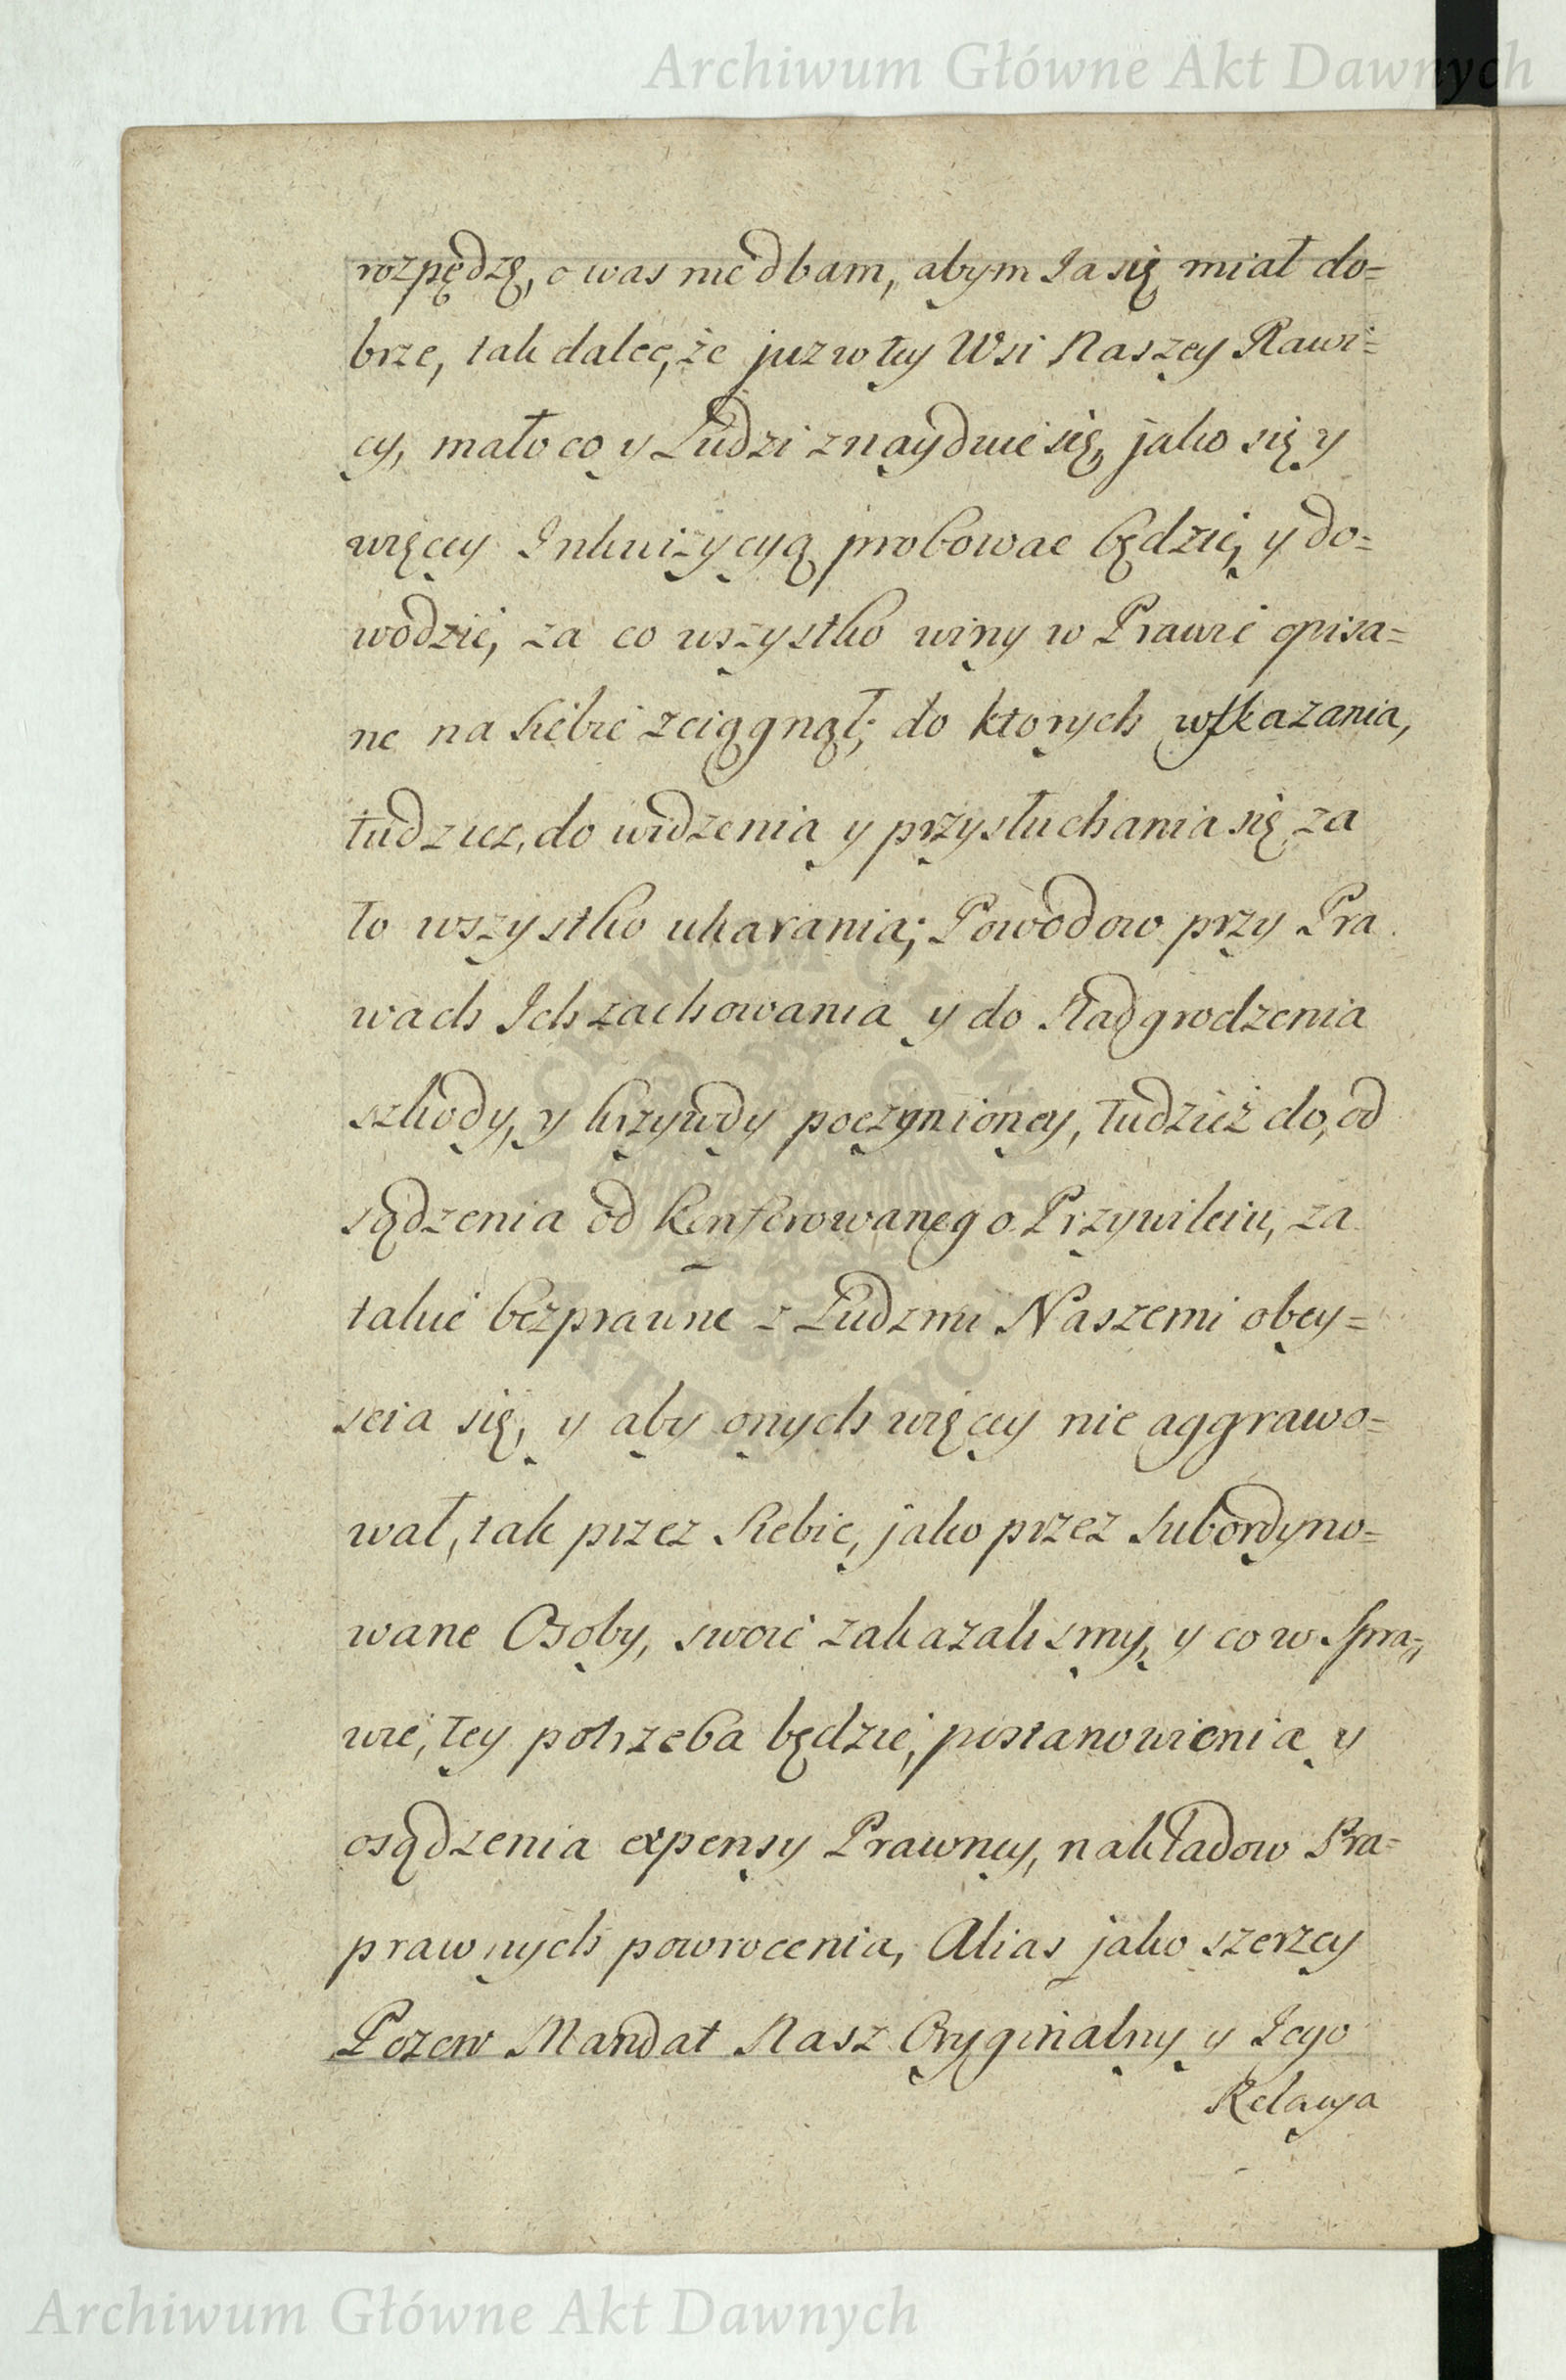 Archiwum Główne Akt Dawnych
rozpędzę, o was nie dbam, abym Ia się miał do=
brze, tak dalece, że juz w tey Wsi Naszey Rawi=
cy, mało co y Ludzi znayduie się, jako się y
więcey Inkwizycyą probowac będzie, y do=
wodzić, za co wszystko winy w Prawie opisa=
ne na siebie zciągnął; do ktorych wskazania,
tudziez, do widzenia y przysłuchania się, za
to wszystko ukarania; Powodow przy Pra
wach Ich zachowania y do Nadgrodzenia
szkody, y krzywdy poczynioney, tudzież do, od
sądzenia od konferowanego Przywileiu, za
takie bezprawne z Ludzmi Naszemi obey=
scia się, y aby onych więcey nie aggrawo=
wał, tak przez siebie, jako przez subordyno=
wane Osoby, swoie zakazalismy, y co w Spra=
wie, tey potrzeba będzie, postanowienia y
osądzenia expensy Prawney, nakładow Pra=
prawnych powrocenia, Alias jako szerzey
Pozew Mandat Nasz Oryginalny y Iego
Relacya
ARCHIWUM GŁÓWNE AKT DAWNYCH
Archiwum Główne Akt Dawnych